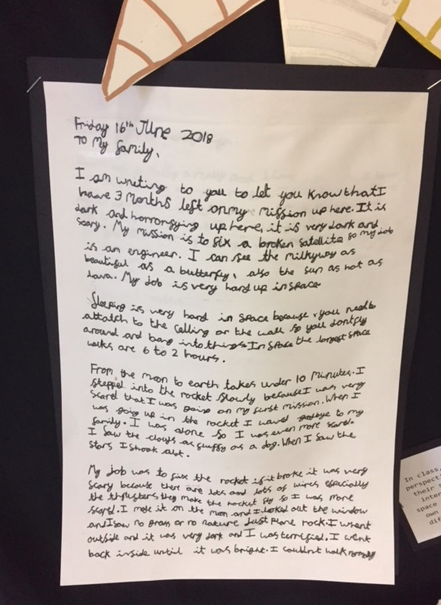 Friday 16th June 2018
To My family,
I am writing to you to let you know that I
have 3 months left on my mission up here. It is
dark and horrorfying up here, it is very dark and
scary. My mission is to fix a broken satellite so my job
is an engineer. I can see the milkyway as
beautiful as a butterfly, also the sun as hot as
lava. My job is very hard up in space
Sleeping is very hard in space because, you need to
attatch to the celling or the wall so you dont fly
around and bang into things In space the longest space
walks are 6 to 2 hours.
From the moon to earth takes under 10 minutes. I
stepped into the rocket slowly because I was very
scared that I was going on my first mission. When I
was going up in the rocket I waved goodbye to my
family. I was alone so I was even more scared.
I saw the clouds as fluffy as a dog. When I saw the
stars I shook
My Job was to fix the rocket if it broke it was very
scary because their are lots and lots of wires especially
the thrusters they make the rocket fly so I was more
scared. I made it on the moon and I looked out the window
and I saw no gras or no nature Just plane rock. I whent
outside and it was very dark and I was terrified. I went
back inside until it was bright. I couldnt walk
In class
perspect
their
inter
space
own
di